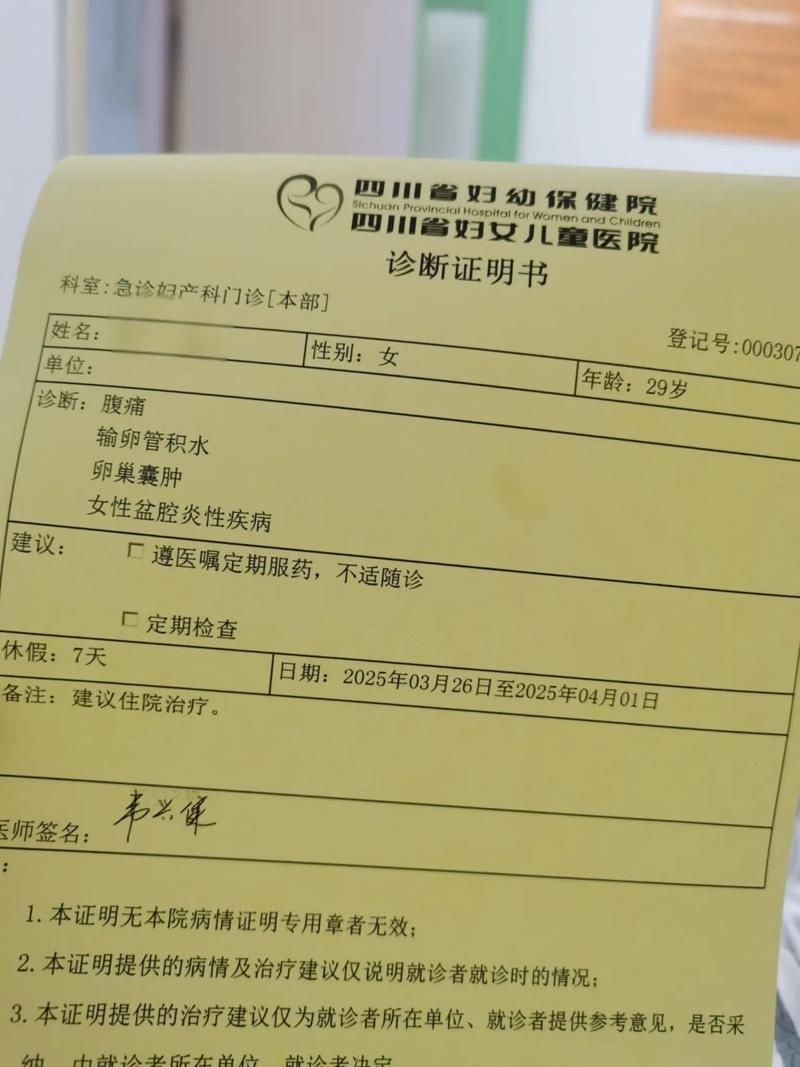 四川省妇幼保健院
Sichuan Provincial Hospital for Women and Children
四川省妇女儿童医院
诊断证明书
科室:急诊妇产科门诊[本部]
登记号:000307
姓名:
性别: 女
年龄: 29岁
单位:
诊断: 腹痛
输卵管积水
卵巢囊肿
女性盆腔炎性疾病
建议: 遵医嘱定期服药，不适随诊
定期检查
休假: 7天
日期: 2025年03月26日至2025年04月01日
备注: 建议住院治疗。
医师签名:
:
1. 本证明无本院病情证明专用章者无效;
2. 本证明提供的病情及治疗建议仅说明就诊者就诊时的情况;
3. 本证明提供的治疗建议仅为就诊者所在单位、就诊者提供参考意见，是否采
纳，由就诊者所在单位、就诊者决定